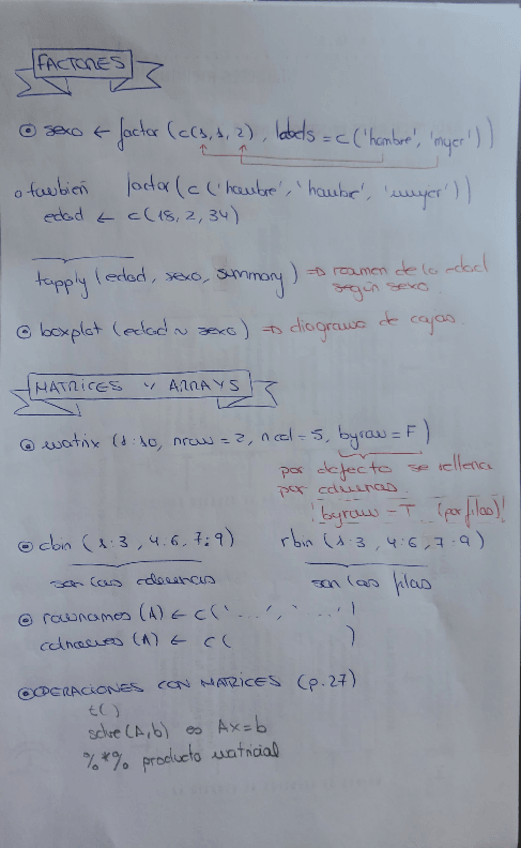 FACTORES
sexo ← factor (c(1, 1, 2), labels = c('hombre', 'mujer'))
o también factor (c ('hombre', 'hombre', 'mujer'))
edad ← c(18, 2, 34)
tapply (edad, sexo, summary) ⇒ resumen de la edad
según sexo.
boxplot (edad ~ sexo) ⇒ diagrama de cajas.
MATRICES Y ARRAYS
matrix (1:10, nrow = 2, ncol = 5, byrow = F)
por defecto se rellena
por columnas.
! byrow = T (por filas)!
cbin (1:3, 4:6, 7:9) rbin (1:3, 4:6, 7:9)
son las columnas son las filas
rownames (A) ← c('...', '...')
colnames (A) ← c( )
OPERACIONES CON MATRICES (p.27)
t()
solve (A,b) ⇔ Ax=b
%*% producto matricial